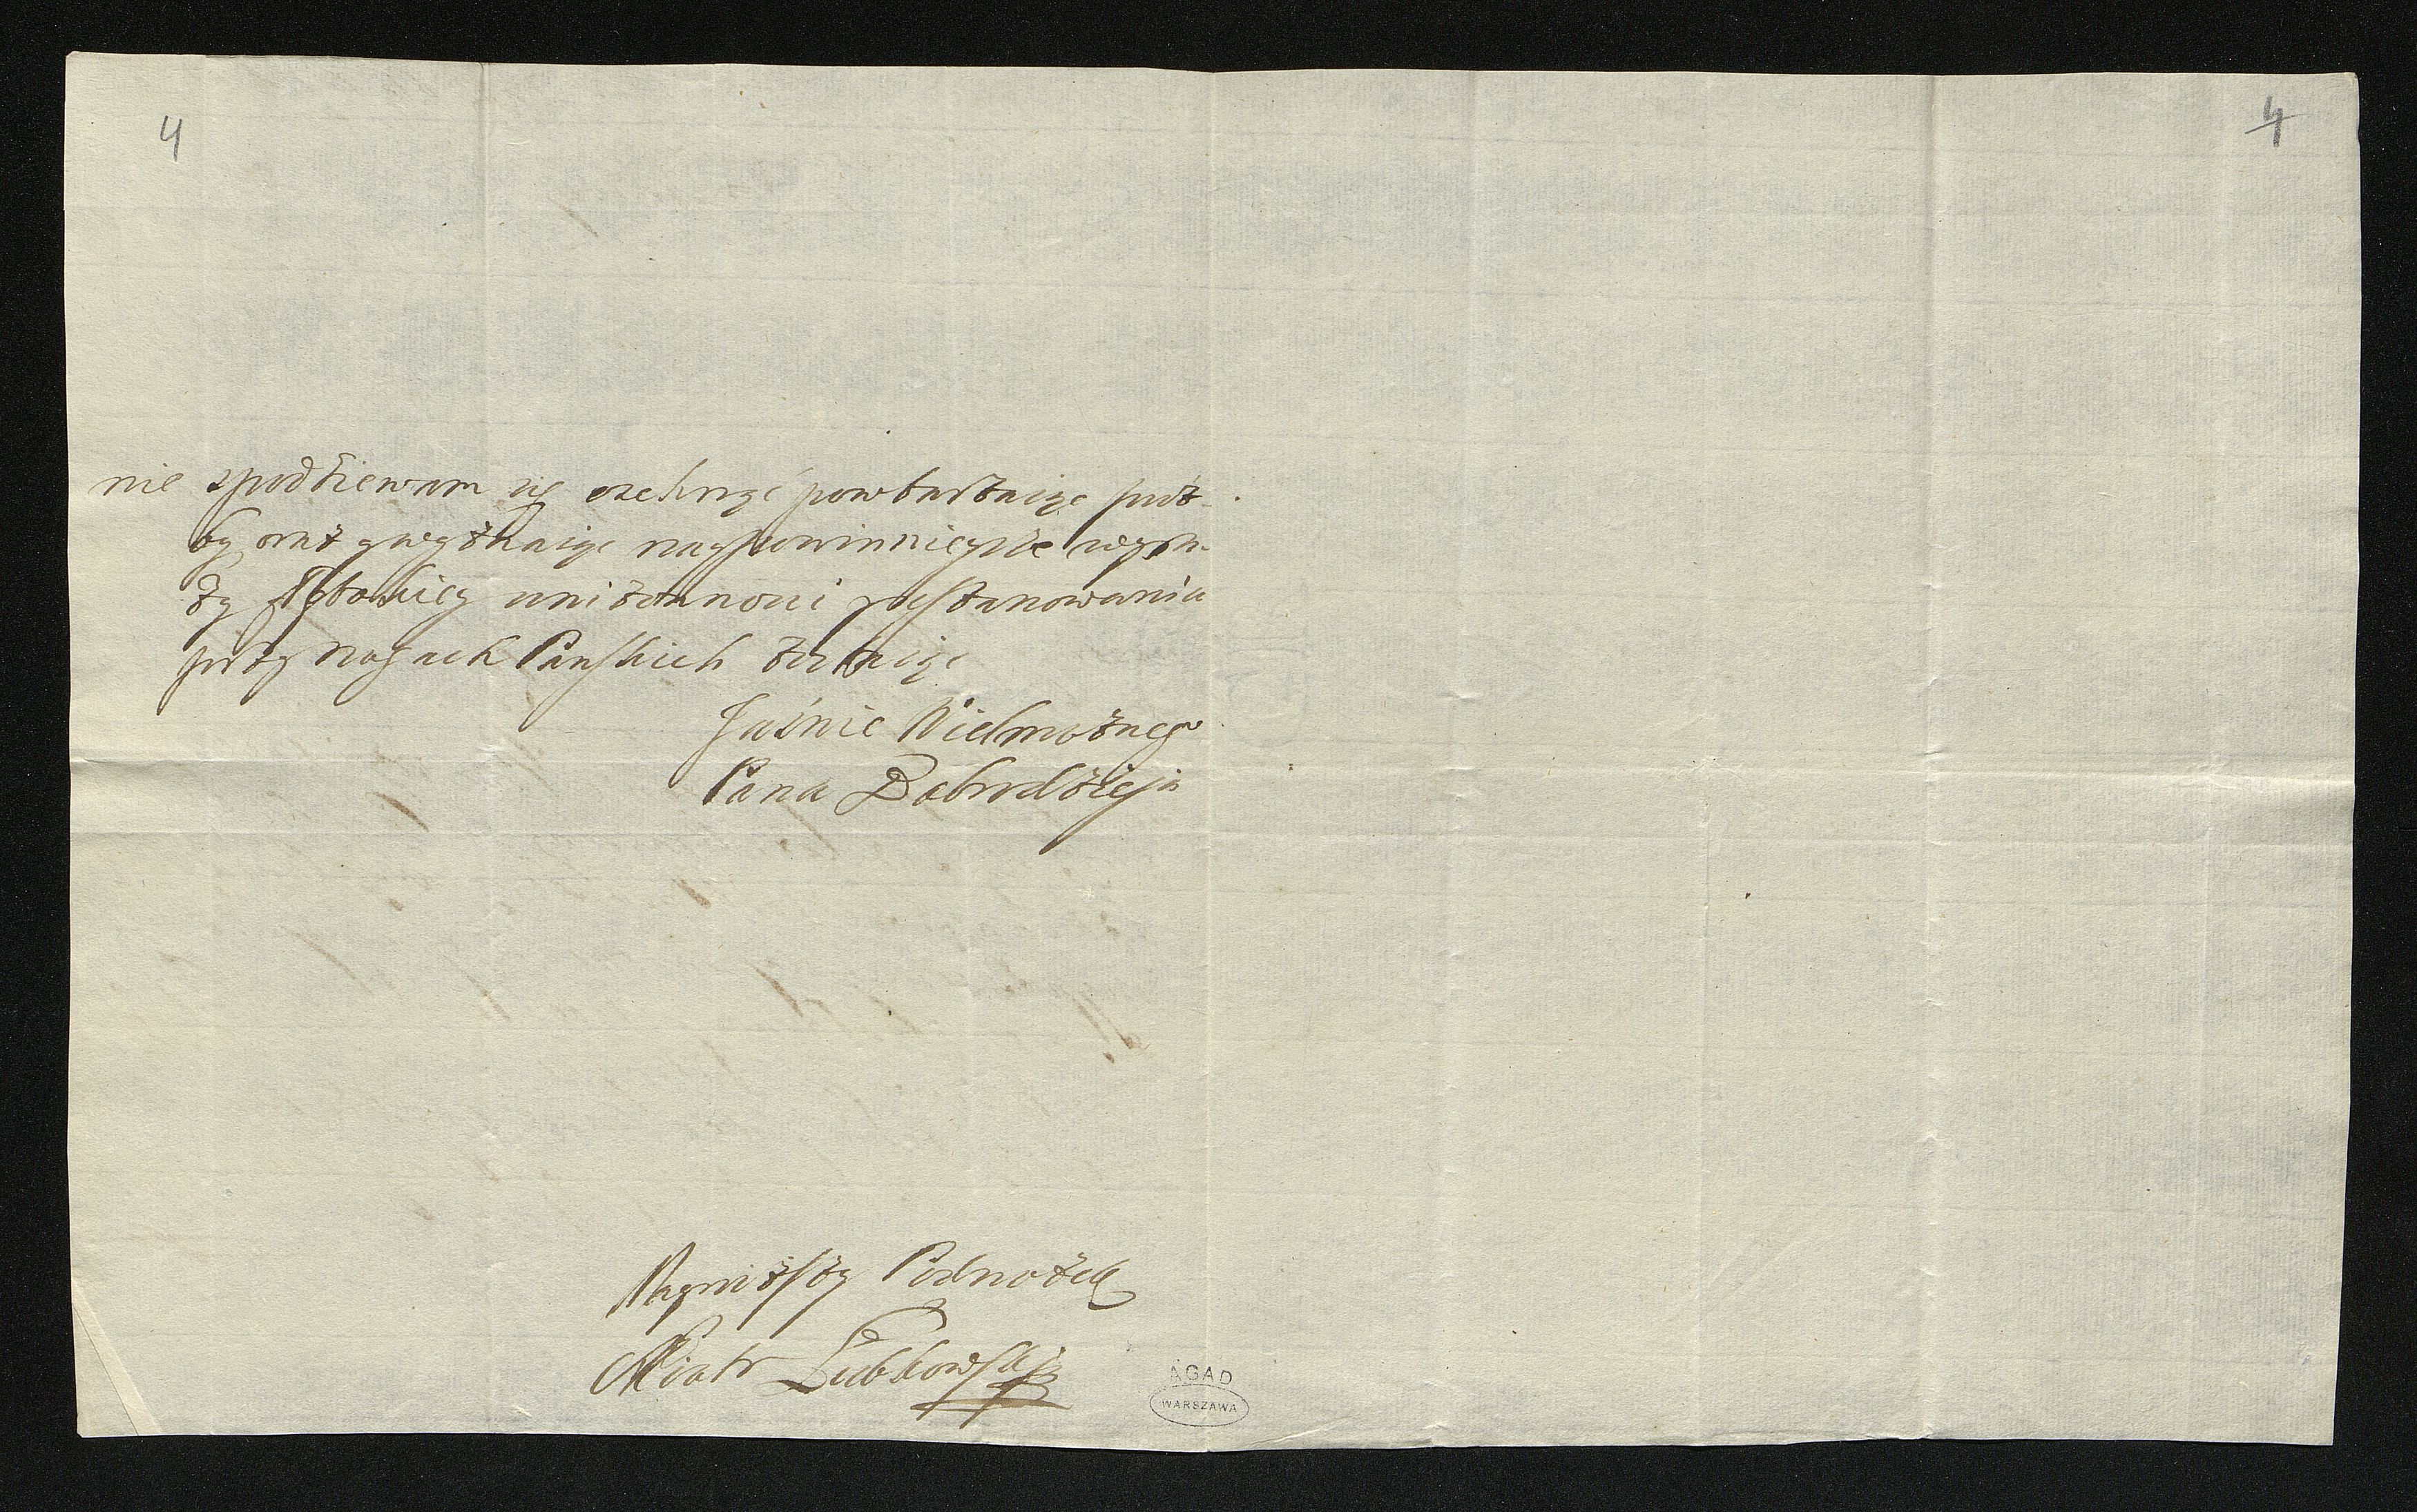 4
4
nie spodziewam się ozchnąć powtarzaiąc proź-
by oraz y wyznaiąc naypowinnieysze wyra-
zy głębokiey uniżonności y uszanowania
przy nogach Pańskich zostaiąc
Jaśnie Wielmożnego
Pana Dobrodzieja
Nayniższy Podnożek
Piotr Lubkowski
AGAD
WARSZAWA